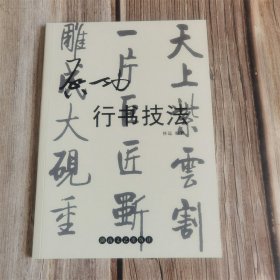 天上紫雲割
一片玉匠斲
雕成大硯重
启功
行书技法